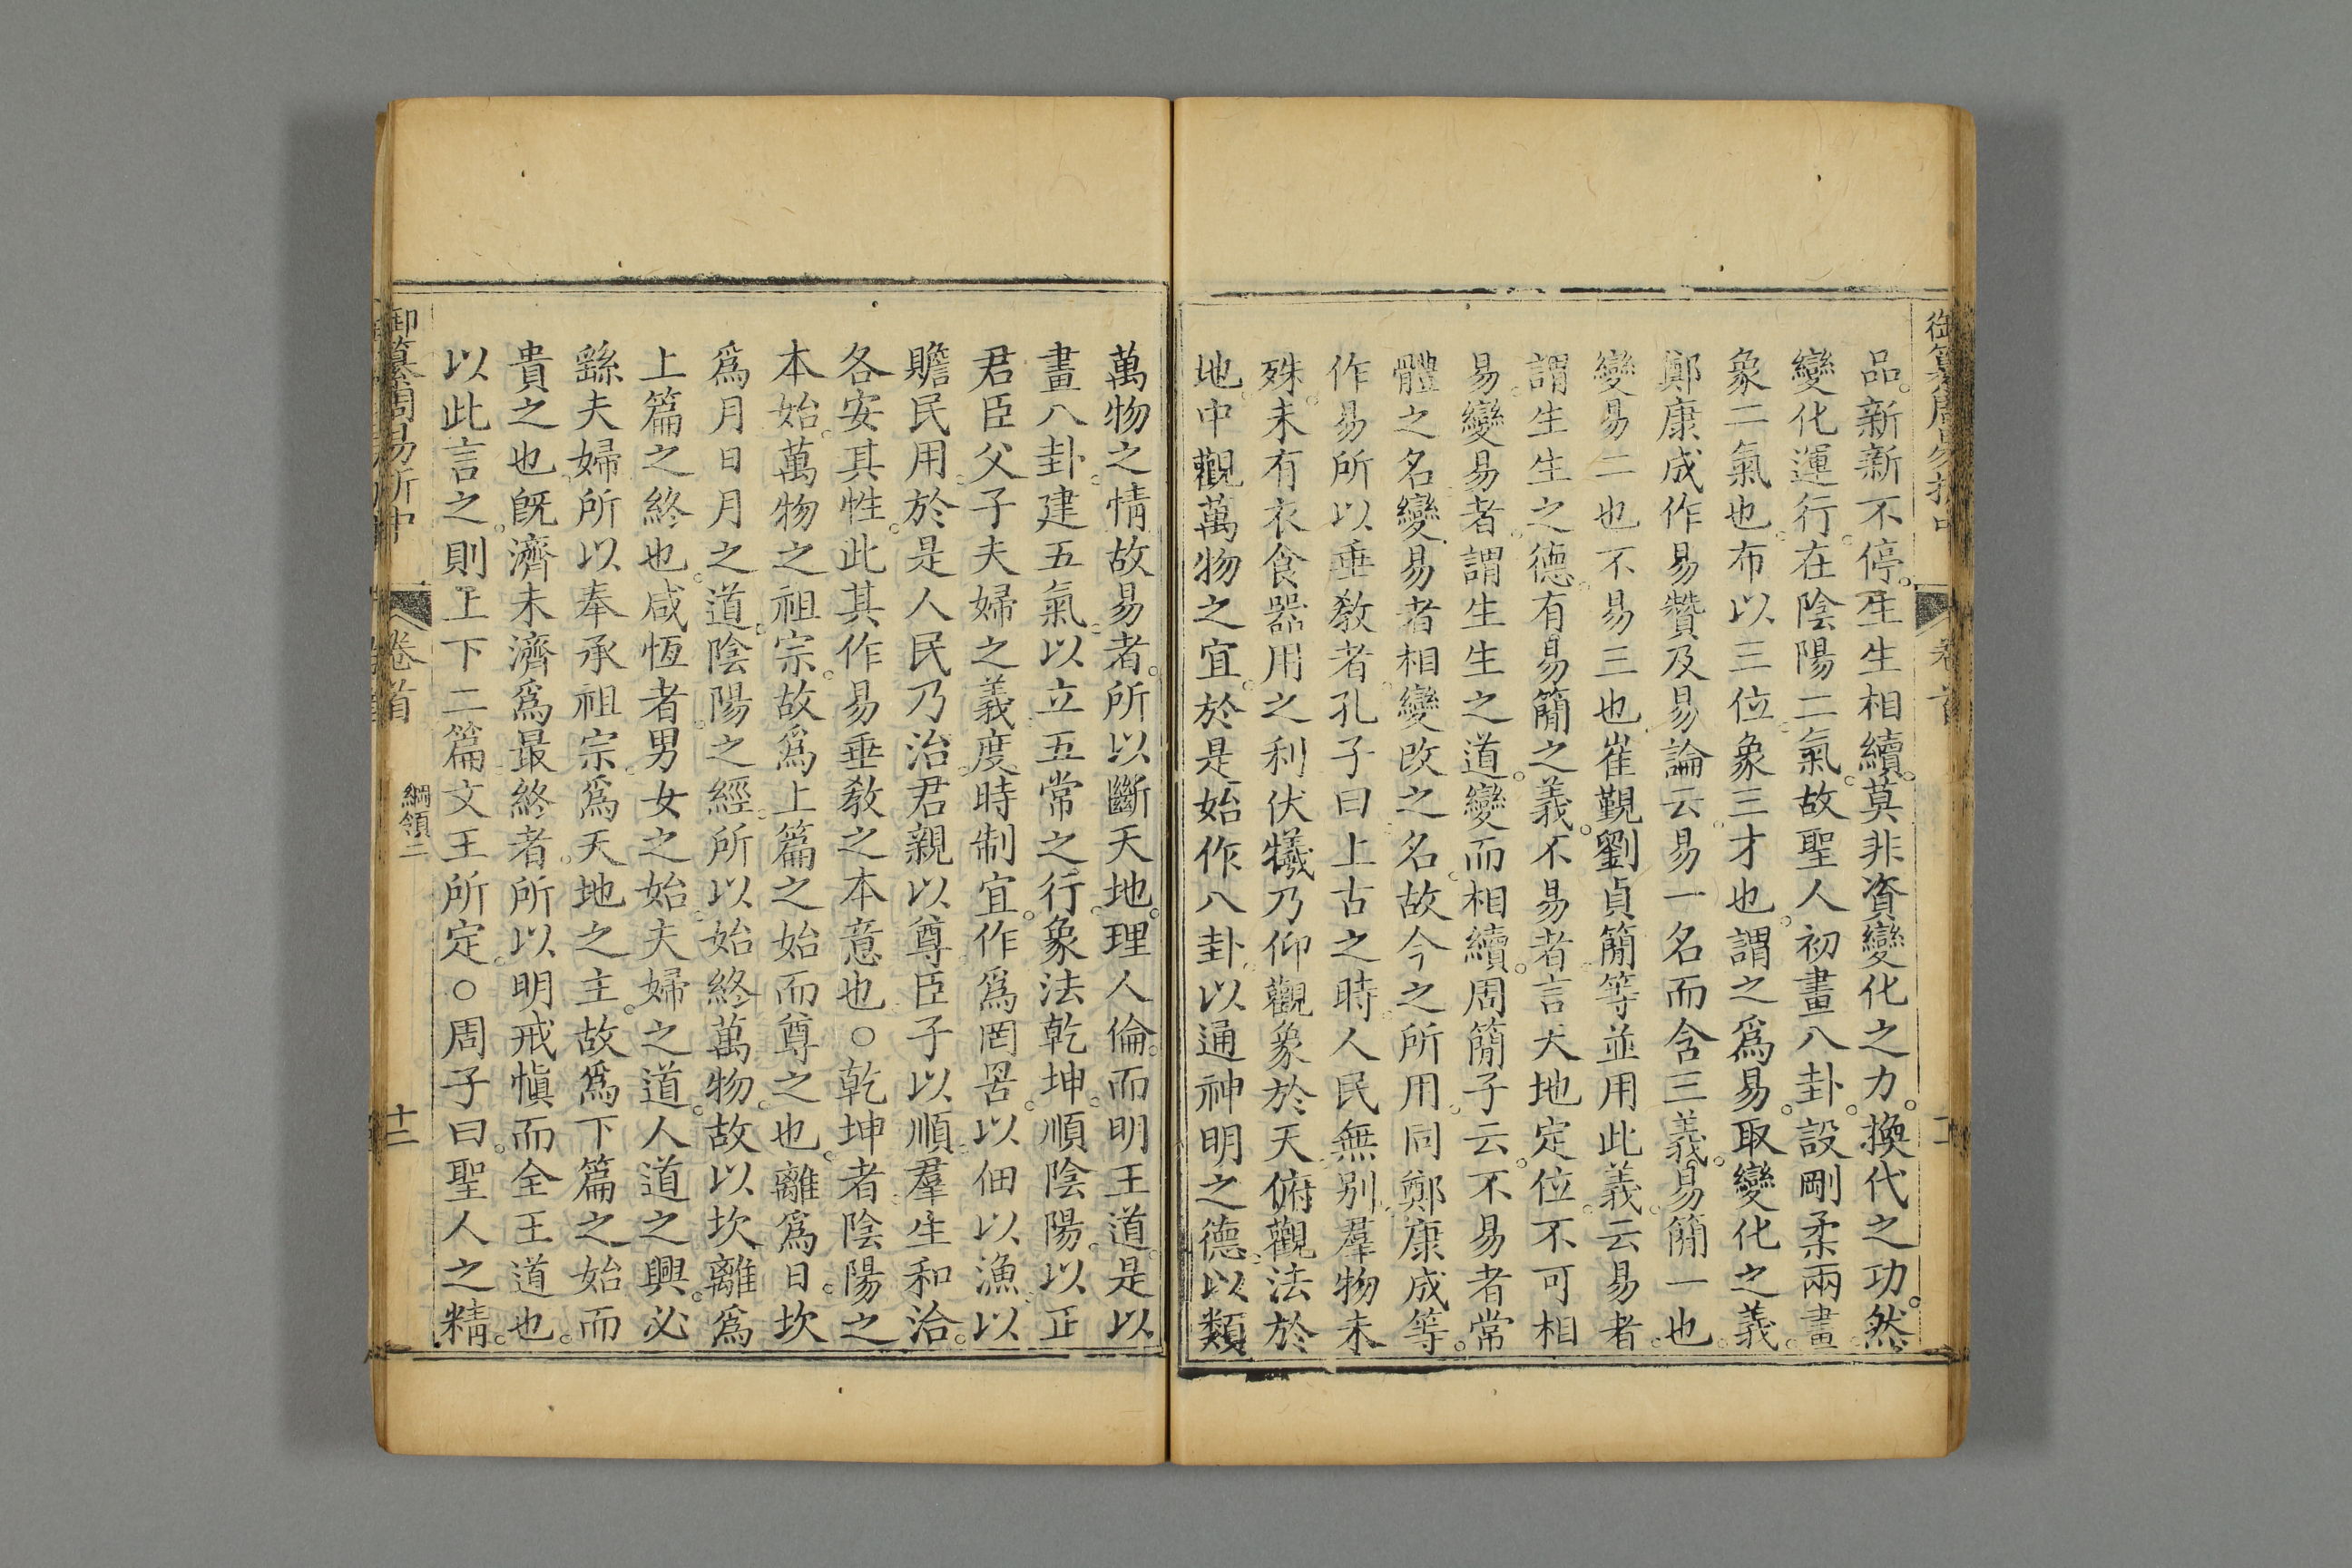 品。新新不停。生生相續。莫非資變化之力。換代之功。然
變化運行。在陰陽二氣。故聖人初畫八卦。設剛柔兩畫。
象二氣也。布以三位。象三才也。謂之爲易。取變化之義。
鄭康成作易贊及易論云。易一名而含三義。易簡一也。
變易二也。不易三也。崔覲劉貞簡等並用此義。云易者。
謂生生之德。有易簡之義。不易者言天地定位。不可相
易。變易者。謂生生之道。變而相續。周簡子云。不易者常
體之名。變易者相變改之名。故今之所用。同鄭康成等。
作易所以垂敎者。孔子曰。上古之時。人民無別。羣物未
殊。未有衣食器用之利。伏犧乃仰觀象於天。俯觀法於
地。中觀萬物之宜。於是始作八卦。以通神明之德。以類
萬物之情。故易者。所以斷天地。理人倫。而明王道。是以
畫八卦。建五氣。以立五常之行。象法乾坤。順陰陽。以正
君臣父子夫婦之義。度時制宜。作爲罔罟。以佃以漁。以
贍民用。於是人民乃治。君親以尊。臣子以順。羣生和洽。
各安其性。此其作易垂敎之本意也。○乾坤者。陰陽之
本始。萬物之祖宗。故爲上篇之始而尊之也。離爲日。坎
爲月。日月之道。陰陽之經。所以始終萬物。故以坎離爲
上篇之終也。咸恆者。男女之始。夫婦之道。人道之興。必
繇夫婦。所以奉承祖宗。爲天地之主。故爲下篇之始而
貴之也。旣濟未濟爲最終者。所以明戒愼而全王道也。
以此言之。則上下二篇。文王所定。○周子曰。聖人之精。
御纂周易折中 卷首 綱領二 十二